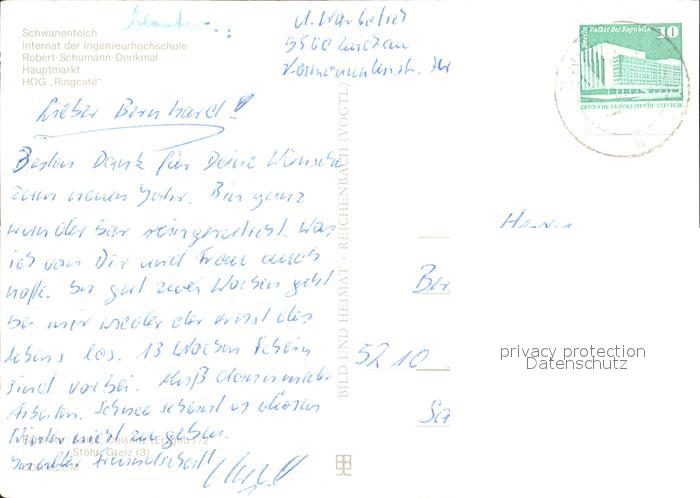 Schwanenteich
Internat der Ingenieurhochschule
Robert-Schumann-Denkmal
Hauptmarkt
HOG „Ringcafé"
9560 Zwickau
Lieber Bernhard!
Besten Dank für Deine Wünsche
zum neuen Jahr. Bin ganz
wunderbar reingerutscht. Was
ich von Dir und Frau auch
hoffe. In gut zwei Wochen geht
bei mir wieder der Ernst des
Lebens los. 13 Wochen
sind vorbei. Muß dann wieder
Arbeiten. Schnee scheint es diesen
Winter nicht zu geben.
In alter Freundschaft
Stöhr, Greiz (3)
BILD UND HEIMAT · REICHENBACH (VOGTL)
Berlin Palast der Republik 10
DEUTSCHE DEMOKRATISCHE REPUBLIK
Herrn
Ber
5210
Sa
privacy protection
Datenschutz